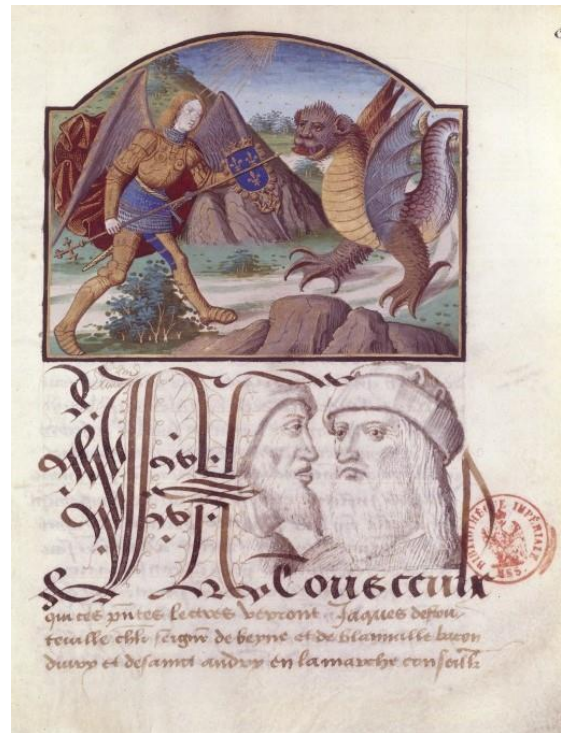 A Tous ceulx
qui ces pntes lectres verront Jaques destou
teuille chlr seignr de beyne et de blainuille baron
diury et de saint andry en la marche conseillr
BIBLIOTHÈQUE IMPÉRIALE
MSS